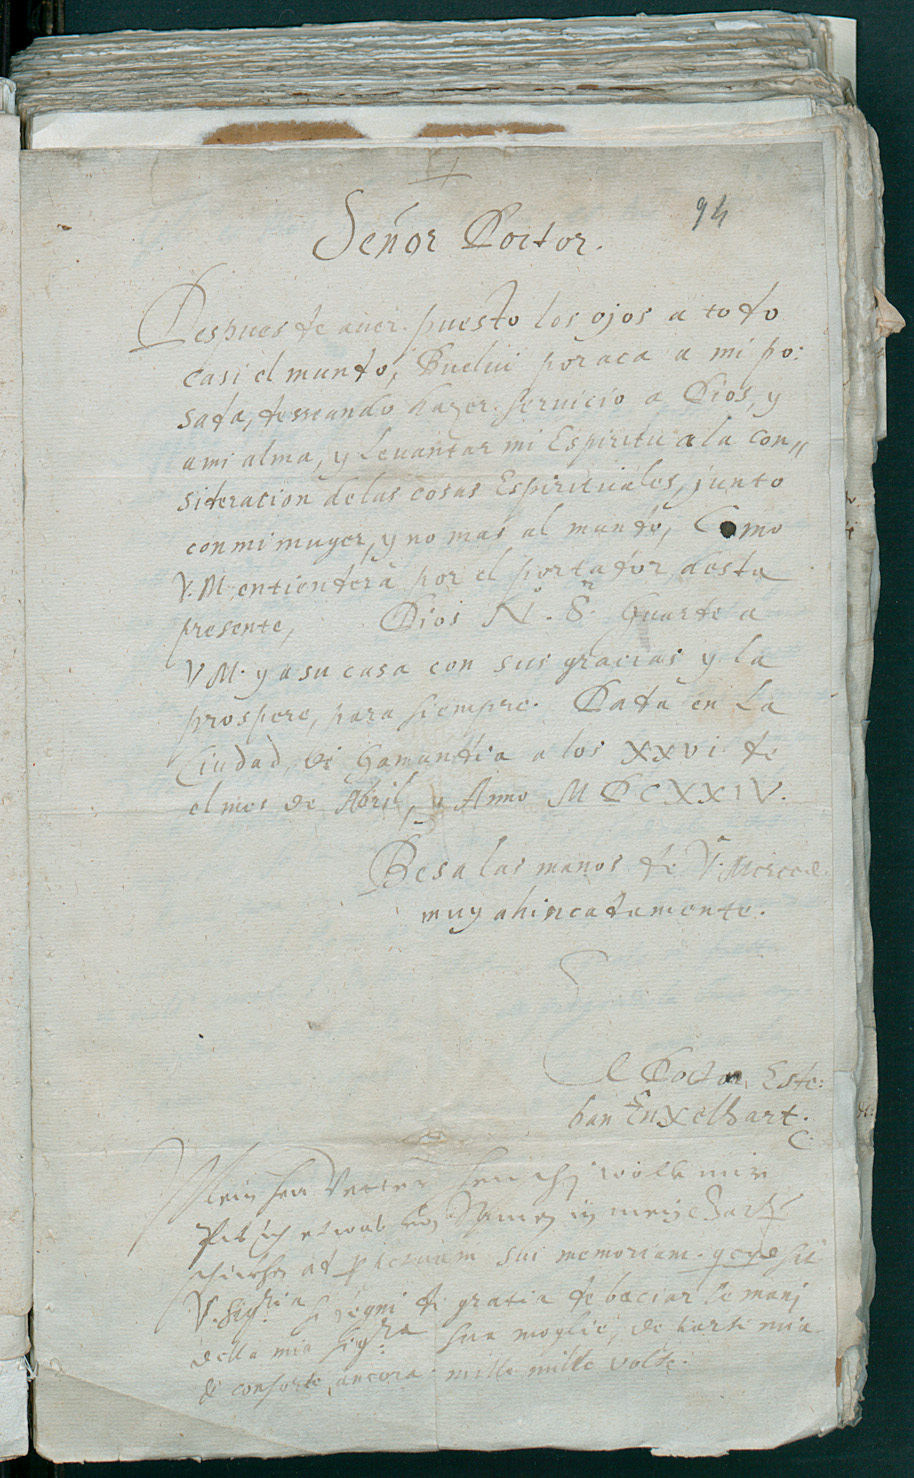 94
Señor Doctor.
Despues de auer puesto los ojos a todo
casi el mundo, Buelui por aca a mi po:
sada, desseando hazer seruicio a Dios, y
a mi alma, y leuantar mi Espiritu a la con„
sideracion de las cosas Espirituales, junto
con mi muger, y no mas al mundo, Como
V.M. entiendera por el portador desta
presente, Dios No. Sr. Guarde a
V M. y a su casa con sus gracias y la
prospere, para siempre. Data en La
Ciudad de Gamundia a los XXVI de
el mes de Abril, Anno M D C XXIV.
Besa las manos de Va. Merced.
muy ahincadamente.
El Doctor Este:
ban Enxelhart.
Mein Herr Vetter wölle mir
etwas in meine
ad perpetuam sui memoriam.
V. Sigria si degni di gratia de baciar le manj
della mia Sigra sua moglie, da parte mia
è consorte, ancora mille mille volte.